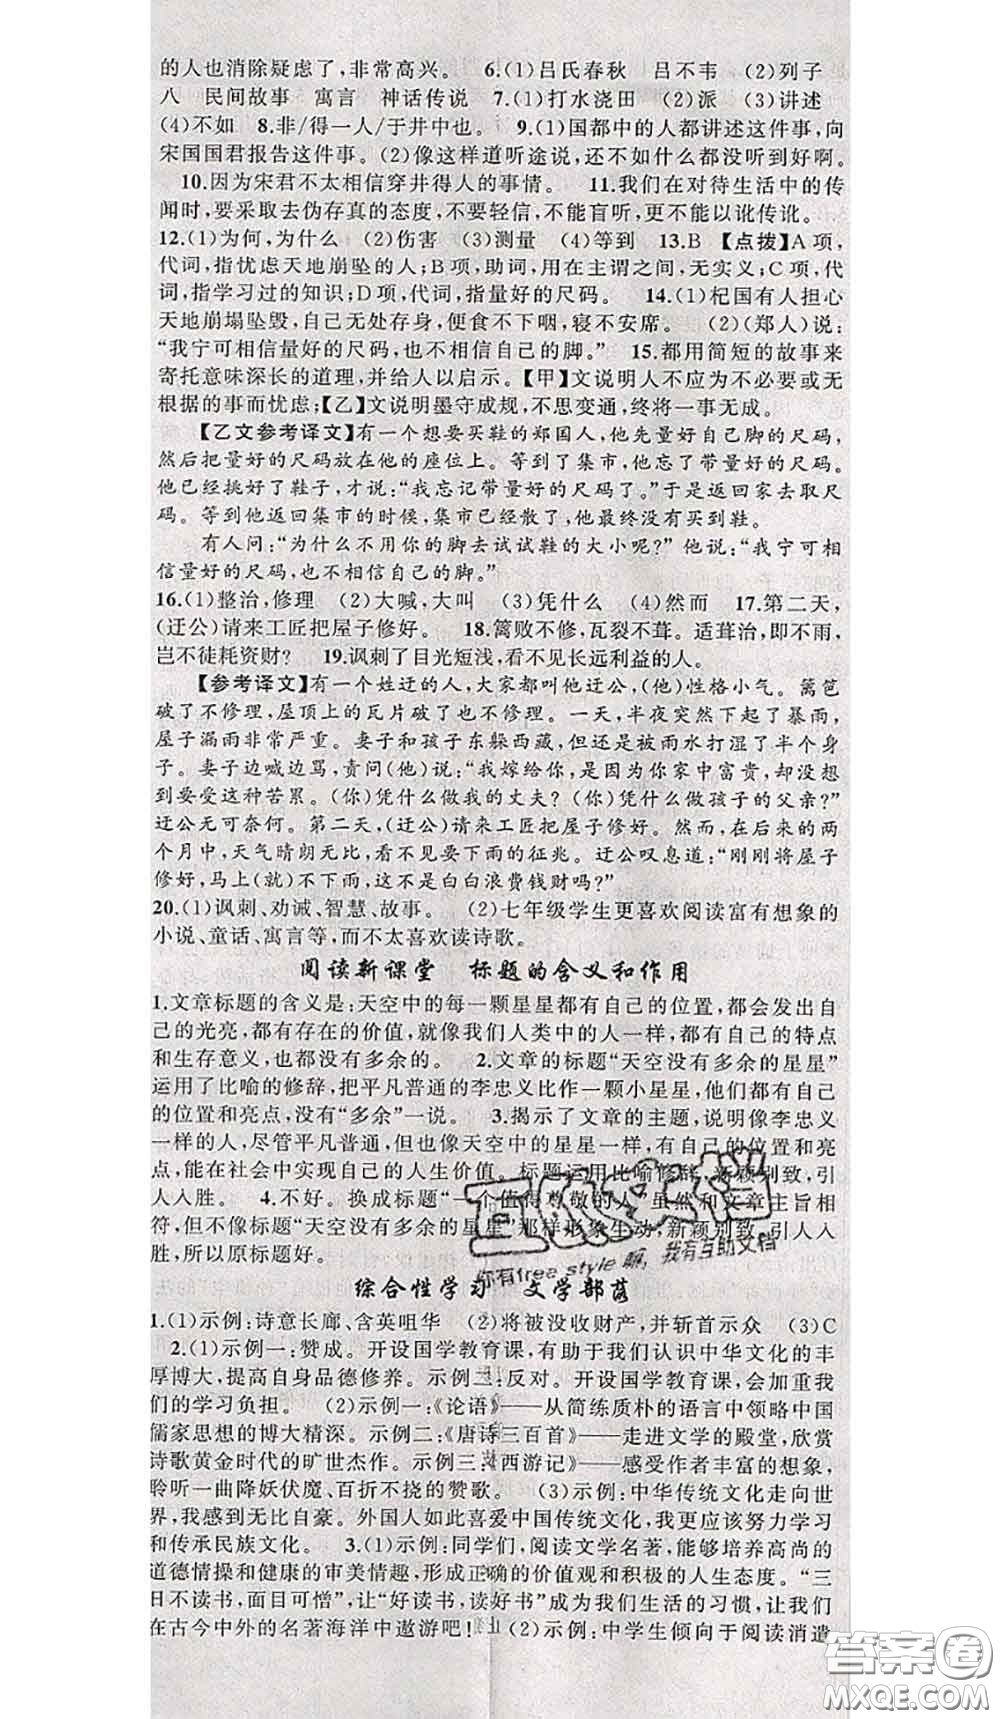 的人也消除疑虑了,非常高兴。 6.(1)吕氏春秋 吕不韦 (2)列子
八 民间故事 寓言 神话传说 7.(1)打水浇田 (2)派 (3)讲述
(4)不如 8.非/得一人/于井中也。 9.(1)国都中的人都讲述这件事,向
宋国国君报告这件事。(2)像这样道听途说,还不如什么都没听到好啊。
10.因为宋君不太相信穿井得人的事情。 11.我们在对待生活中的传
闻时,要采取去伪存真的态度,不要轻信,不能盲听,更不能以讹传讹。
12.(1)为何,为什么 (2)伤害 (3)测量 (4)等到 13.B 【点拨】A项,
代词,指忧虑天地崩坠的人;B项,助词,用在主谓之间,无实义;C项,代
词,指学习过的知识;D项,代词,指量好的尺码。 14.(1)杞国有人担心
天地崩塌坠毁,自己无处存身,便食不下咽,寝不安席。 (2)(郑人)说:
“我宁可相信量好的尺码,也不相信自己的脚。” 15.都用简短的故事来
寄托意味深长的道理,并给人以启示。【甲】文说明人不应为不必要或无
根据的事而忧虑;【乙】文说明墨守成规,不思变通,终将一事无成。
【乙文参考译文】有一个想要买鞋的郑国人,他先量好自己脚的尺码,
然后把量好的尺码放在他的座位上。等到了集市,他忘了带量好的尺码。
他已经挑好了鞋子,才说:“我忘记带量好的尺码了。”于是返回家去取尺
码。等到他返回集市的时候,集市已经散了,他最终没有买到鞋。
有人问:“为什么不用你的脚去试试鞋的大小呢?” 他说:“我宁可相
信量好的尺码,也不相信自己的脚。”
16.(1)整治,修理 (2)大喊,大叫 (3)凭什么 (4)然而 17.第二天,
(迂公)请来工匠把屋子修好。 18.篱败不修,瓦裂不葺。适葺治,即不雨,
岂不徒耗资财? 19.讽刺了目光短浅,看不见长远利益的人。
【参考译文】有一个姓迂的人,大家都叫他迂公,(他)性格小气。篱笆
破了不修理,屋顶上的瓦片破了也不修理。一天,半夜突然下起了暴雨,
屋子漏雨非常严重。妻子和孩子东躲西藏,但还是被雨水打湿了半个身
子。妻子边喊边骂,责问(他)说:“我嫁给你,是因为你家中富贵,却没想
到要受这种苦累。(你)凭什么做我的丈夫? (你)凭什么做孩子的父亲?”
迂公无可奈何。第二天,(迂公)请来工匠把屋子修好。然而,在后来的两
个月中,天气晴朗无比,看不见要下雨的征兆。迂公叹息道:“刚刚将屋子
修好,马上(就)不下雨,这不是白白浪费钱财吗?”
20.(1)讽刺、劝诫、智慧、故事。 (2)七年级学生更喜欢阅读富有想象的
小说、童话、寓言等,而不太喜欢读诗歌。
阅读新课堂 标题的含义和作用
1.文章标题的含义是:天空中的每一颗星星都有自己的位置,都会发出自
己的光亮,都有存在的价值,就像我们人类中的人一样,都有自己的特点
和生存意义,也都没有多余的。 2.文章的标题“天空没有多余的星星”
运用了比喻的修辞,把平凡普通的李忠义比作一颗小星星,他们都有自己
的位置和亮点,没有“多余”一说。 3.揭示了文章的主题,说明像李忠义
一样的人,尽管平凡普通,但也像天空中的星星一样,有自己的位置和亮
点,能在社会中实现自己的人生价值。标题运用比喻修辞,新颖别致,引
人入胜。 4.不好。换成标题“一个值得尊敬的人”虽然和文章主旨相
符,但不像标题“天空没有多余的星星”那样形象生动,新颖别致,引人入
胜,所以原标题好。
综合性学习 文学部落
1.(1)示例:诗意长廊、含英咀华 (2)将被没收财产,并斩首示众 (3)C
2.(1)示例一:赞成。开设国学教育课,有助于我们认识中华文化的丰
厚博大,提高自身品德修养。示例二:反对。开设国学教育课,会加重我
们的学习负担。 (2)示例一:《论语》——从简练质朴的语言中领略中国
儒家思想的博大精深。示例二:《唐诗三百首》——走进文学的殿堂,欣赏
诗歌黄金时代的旷世杰作。示例三:《西游记》——感受作者丰富的想象,
聆听一曲降妖伏魔、百折不挠的赞歌。 (3)示例:中华传统文化走向世
界,我感到无比自豪。外国人如此喜爱中国传统文化,我更应该努力学习
和传承民族文化。 3.(1)示例:同学们,阅读文学名著,能够培养高尚的
道德情操和健康的审美情趣,形成正确的价值观和积极的人生态度。“三
日不读书,面目可憎”,让“好读书,读好书”成为我们生活的习惯,让我们
在古今中外的名著海洋中遨游吧! (2)示例:中学生倾向于阅读消遣
互助文档
你有free style 嘛, 我有互助文档
答案圈
MXQE.COM